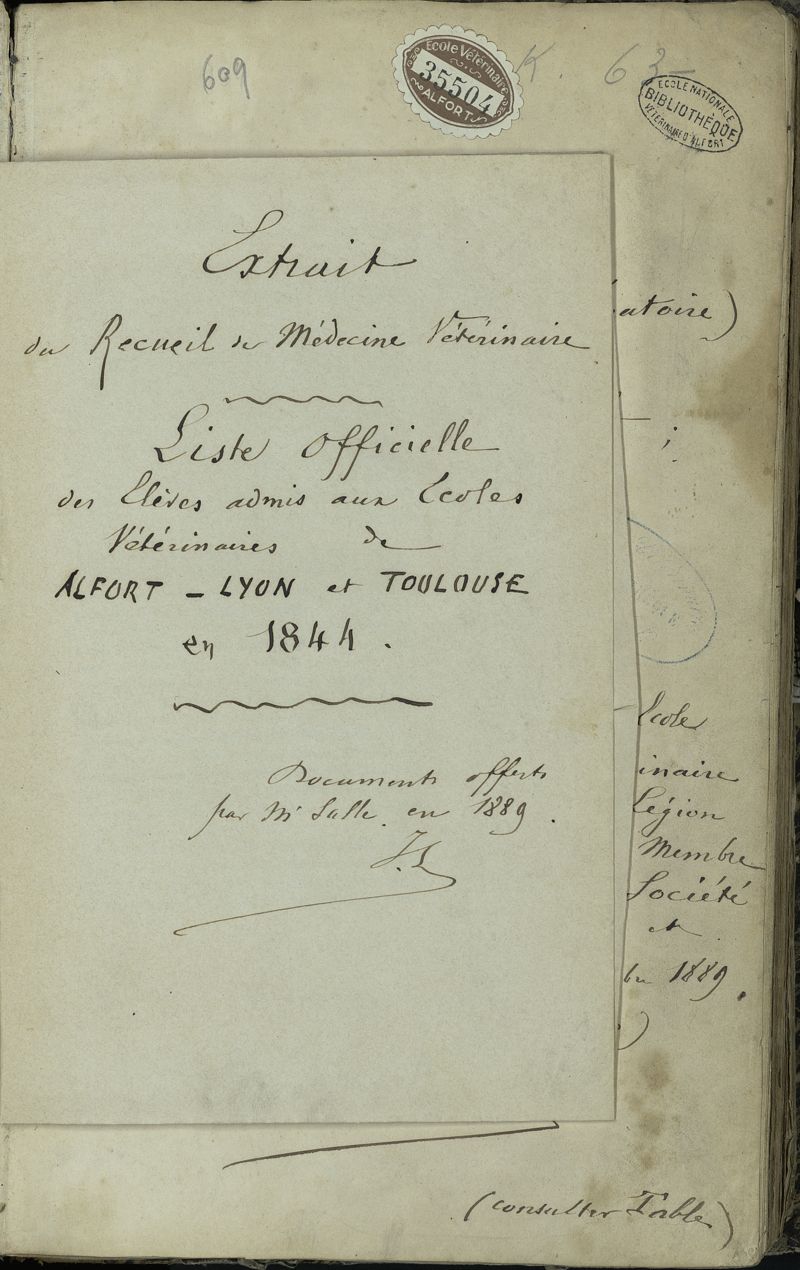 609
Ecole Vétérinaire
35504
ALFORT
K. 63
ECOLE NATIONALE
BIBLIOTHÈQUE
VÉTÉRINAIRE D'ALFORT
Extrait
du Recueil de Médecine Vétérinaire
Liste Officielle
des Elèves admis aux Ecoles
Vétérinaires de
ALFORT - LYON et TOULOUSE
en 1844.
Documents offerts
par Mr Salle en 1889.
atoire)
;
Ecole
inaire
Légion
Membre
Société
et
bre 1889.
)
(consulter Table)